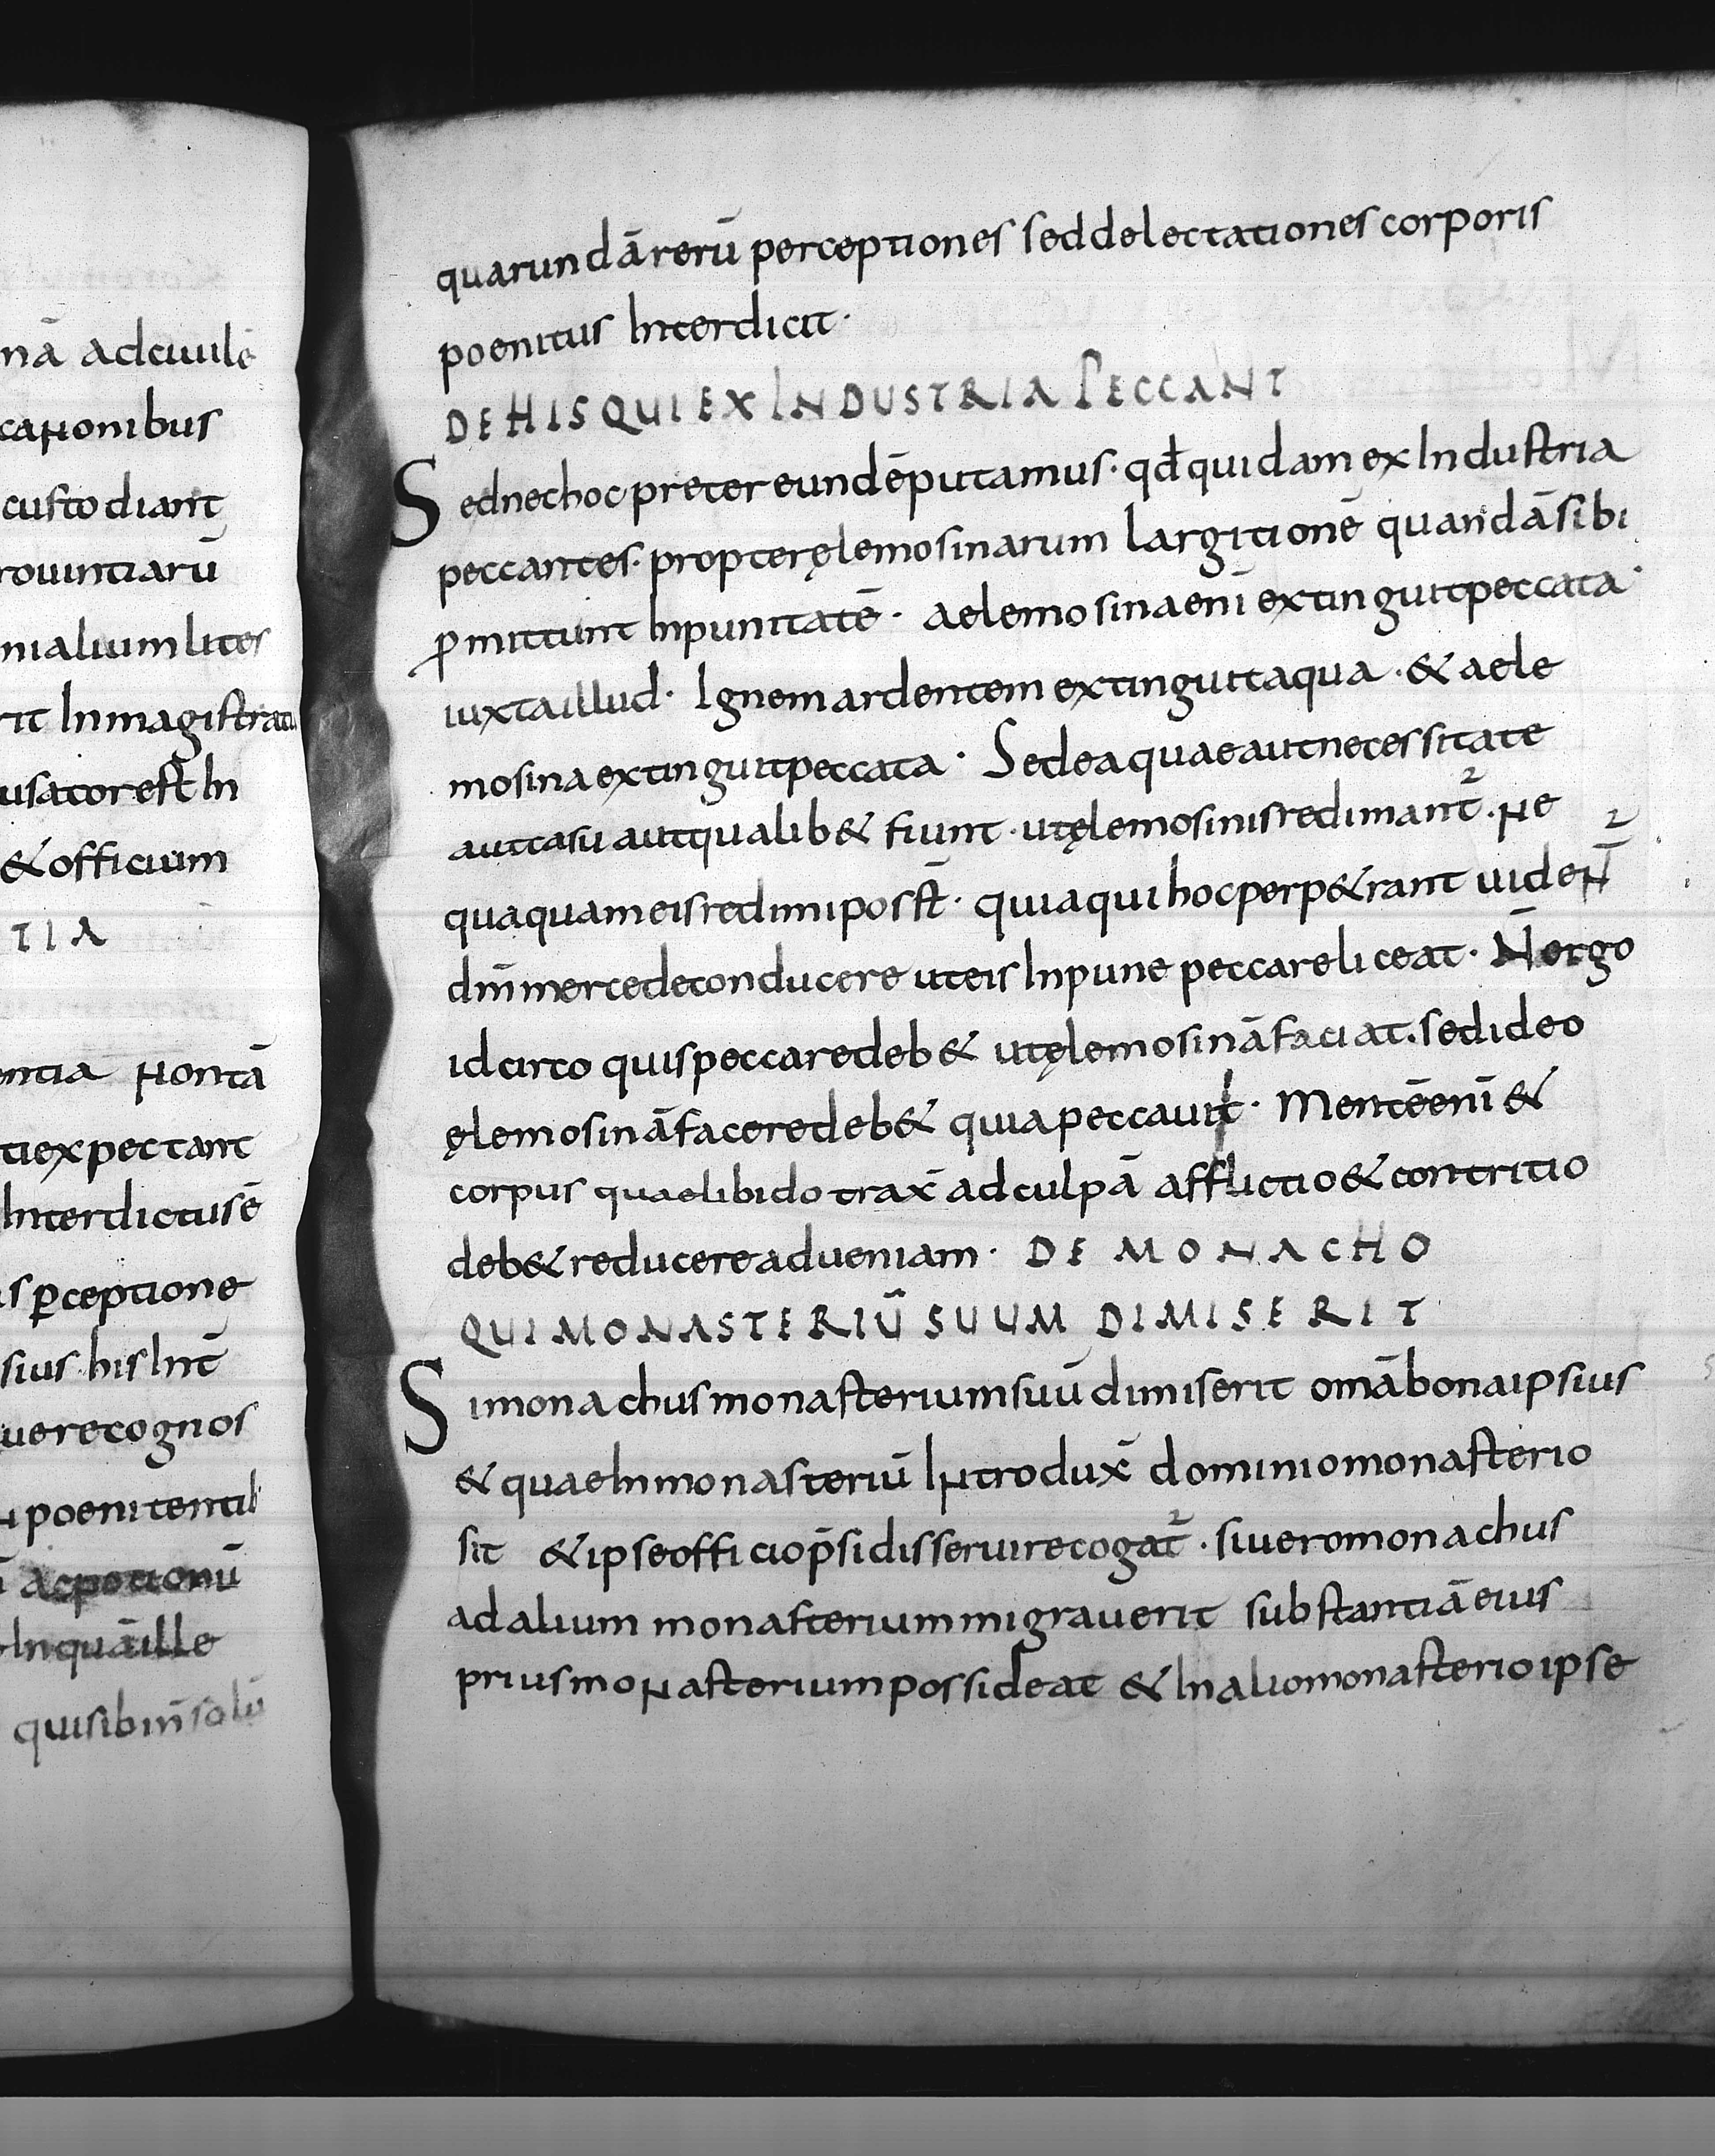 nā adciuile
cationibus
custodiant
rouintiarū
nialium lites
rit In magistratu
usator est In
& officium
TIA
entia nontā
ti expectant
Interdictus ē
s ꝑceptione
sius his Int̄
uere cognos
poenitentib
ac potionū
In quā ille
quis ibi n̄ solū
quarundā rerū perceptiones sed delectationes corporis
poenitus Interdicit·
DE HIS QUI EX INDUSTRIA PECCANT
Sed nec hoc preter eundē putamus· qđ quidam ex Industria
peccantes· propter ęlemosinarum largitionē quandā sibi
ꝓmittunt Inpunitatē· aelemosina enī extinguit peccata·
iuxta illud· Ignem ardentem extinguit aqua· & aele
mosina extinguit peccata· Sed ea quae aut necessitate
aut casu aut qualib& fiunt· ut ęlemosinis redimant᷑· ne
quaquam eis redimi post̄· quia qui hoc perp&rant uident᷑
dm̄ mercede conducere ut eis Inpune peccare liceat· N̄ ergo
idcirco quis peccare deb& ut ęlemosinā faciat· sed ideo
ęlemosinā facere deb& quia peccauit· Mentē enī &
corpus quae libido trax̄ ad culpā afflictio & contritio
deb& reducere ad ueniam· DE MONACHO
QUI MONASTERIŪ SUUM DIMISERIT
Si monachus monasterium suū dimiserit omā bona ipsius
& quae In monasteriū Introdux̄ dominio monasterio
sit & ipse officio p̄sidis seruire cogat᷑· si uero monachus
ad alium monasterium migrauerit substantiā eius
prius monasterium possideat & In alio monasterio ipse